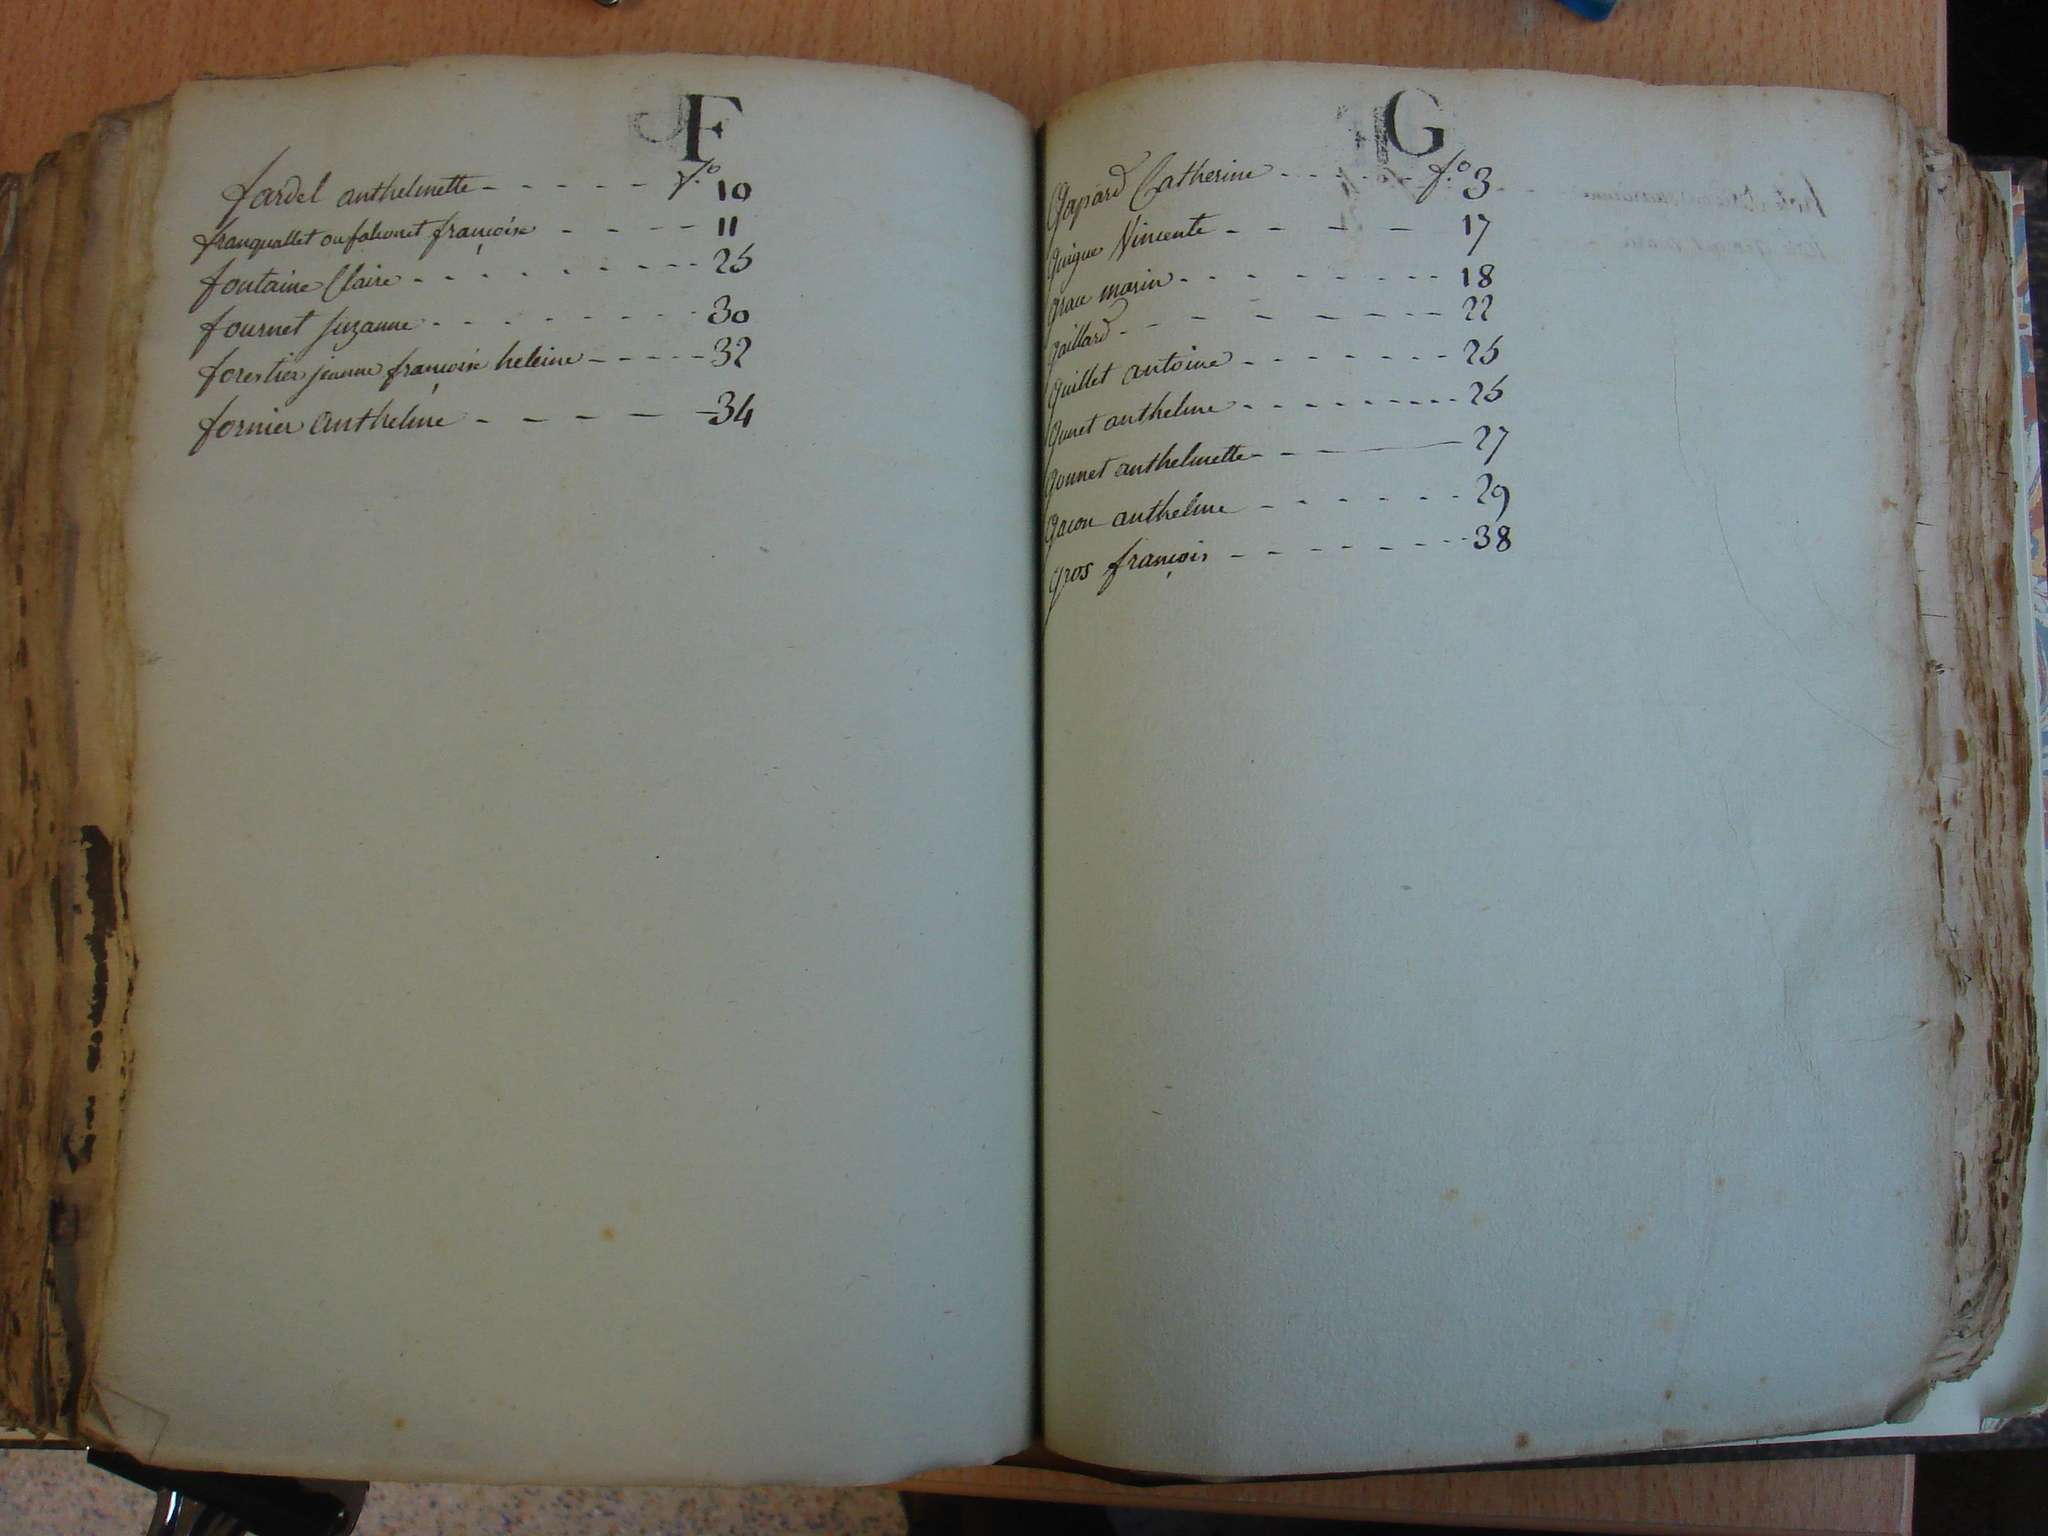 F
fardel anthelmette - - - - - - f.o 10
franquallet ou falconet françoise - - - - 11
fontaine Claire - - - - - - - - 25
fournet suzanne - - - - - - - 30
forestier jeanne françoise heleine - - - - - 32
fornier anthelme - - - - - 34
G
Gapard Catherine - - - - - f.o 3
Guigue Vincente - - - - - 17
Grace marin - - - - - - - - 18
Gaillard - - - - - - - - 22
Guillet antoine - - - - - - - 25
Gunet anthelme - - - - - - - - - 25
Gonnet anthelmette - - - 27
Gacon anthelme - - - - - - - 29
gros françois - - - - - - - - 38